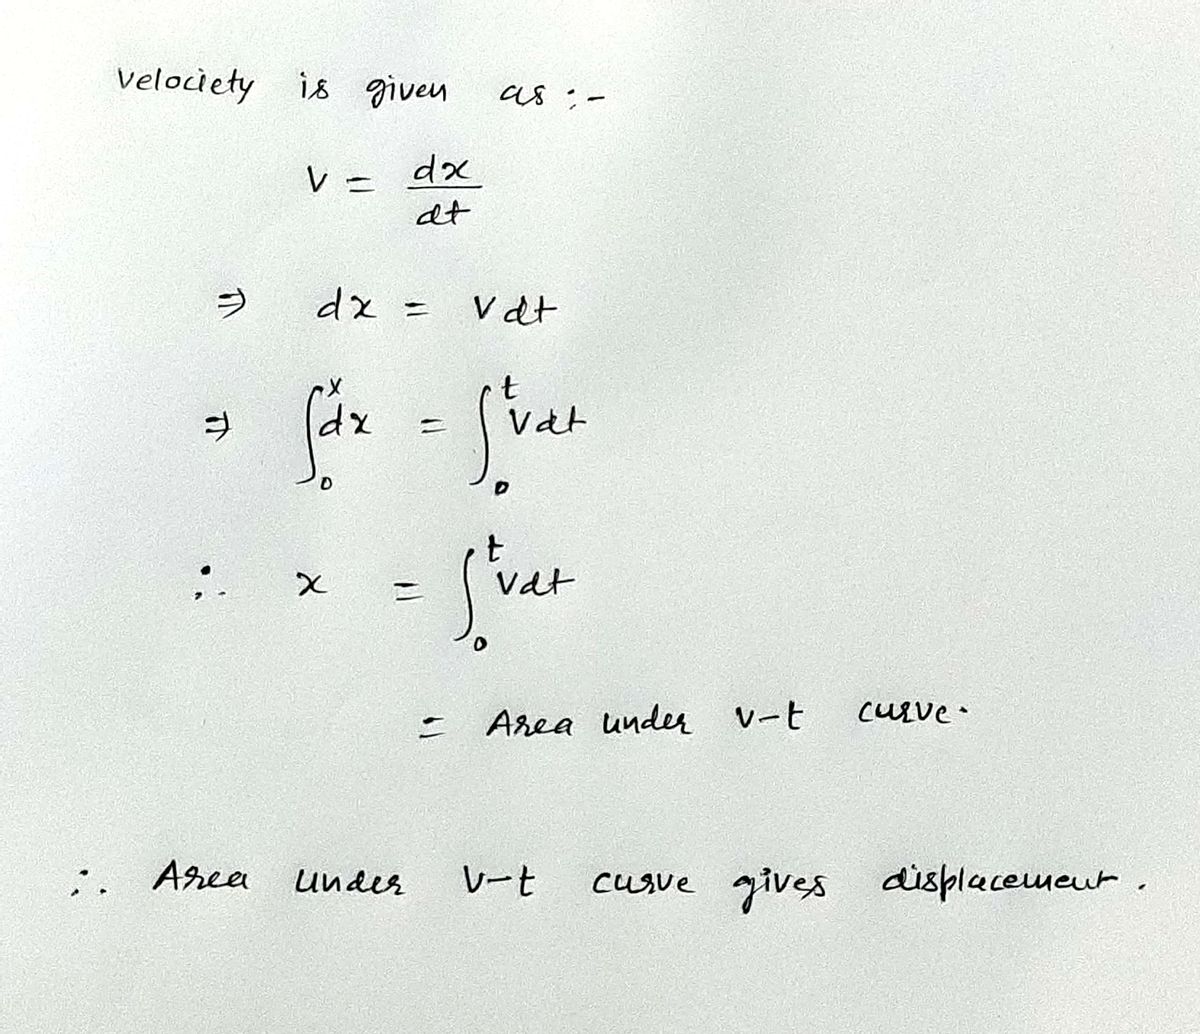 velociety is given as :-
v = dx/dt
⇒ dx = vdt
⇒ ∫₀ˣ dx = ∫₀ᵗ vdt
∴ x = ∫₀ᵗ vdt
= Area under v-t curve.
∴ Area under v-t curve gives displacement.